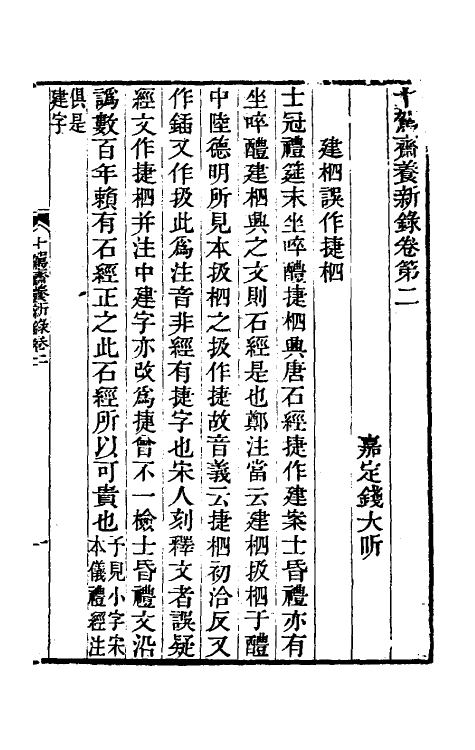 十駕齋養新錄卷第二
嘉定錢大昕
建柶誤作捷柶
士冠禮筵末坐啐醴捷柶興唐石經捷作建案士昏禮亦有
坐啐醴建柶興之文則石經是也鄭注當云建柶扱柶于醴
中陸德明所見本扱柶之扱作捷故音義云捷柶初洽反又
作鍤又作扱此爲注音非經有捷字也宋人刻釋文者誤疑
經文作捷柶并注中建字亦改爲捷曾不一檢士昏禮文沿
譌數百年賴有石經正之此石經所以可貴也
予見小字宋
本儀禮經注
俱是
建字
十駕齋養新錄卷二
一